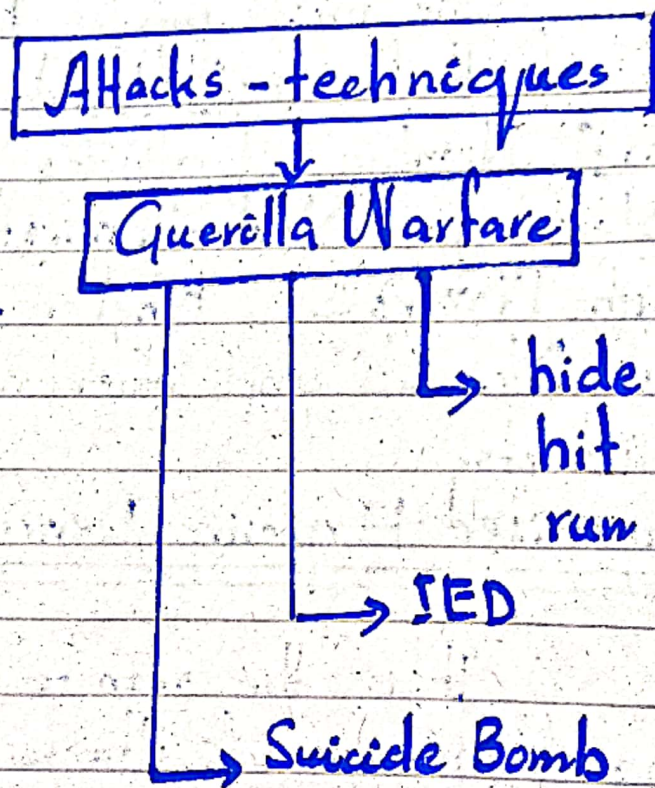 Attacks - techniques
Guerilla Warfare
hide
hit
run
IED
Suicide Bomb